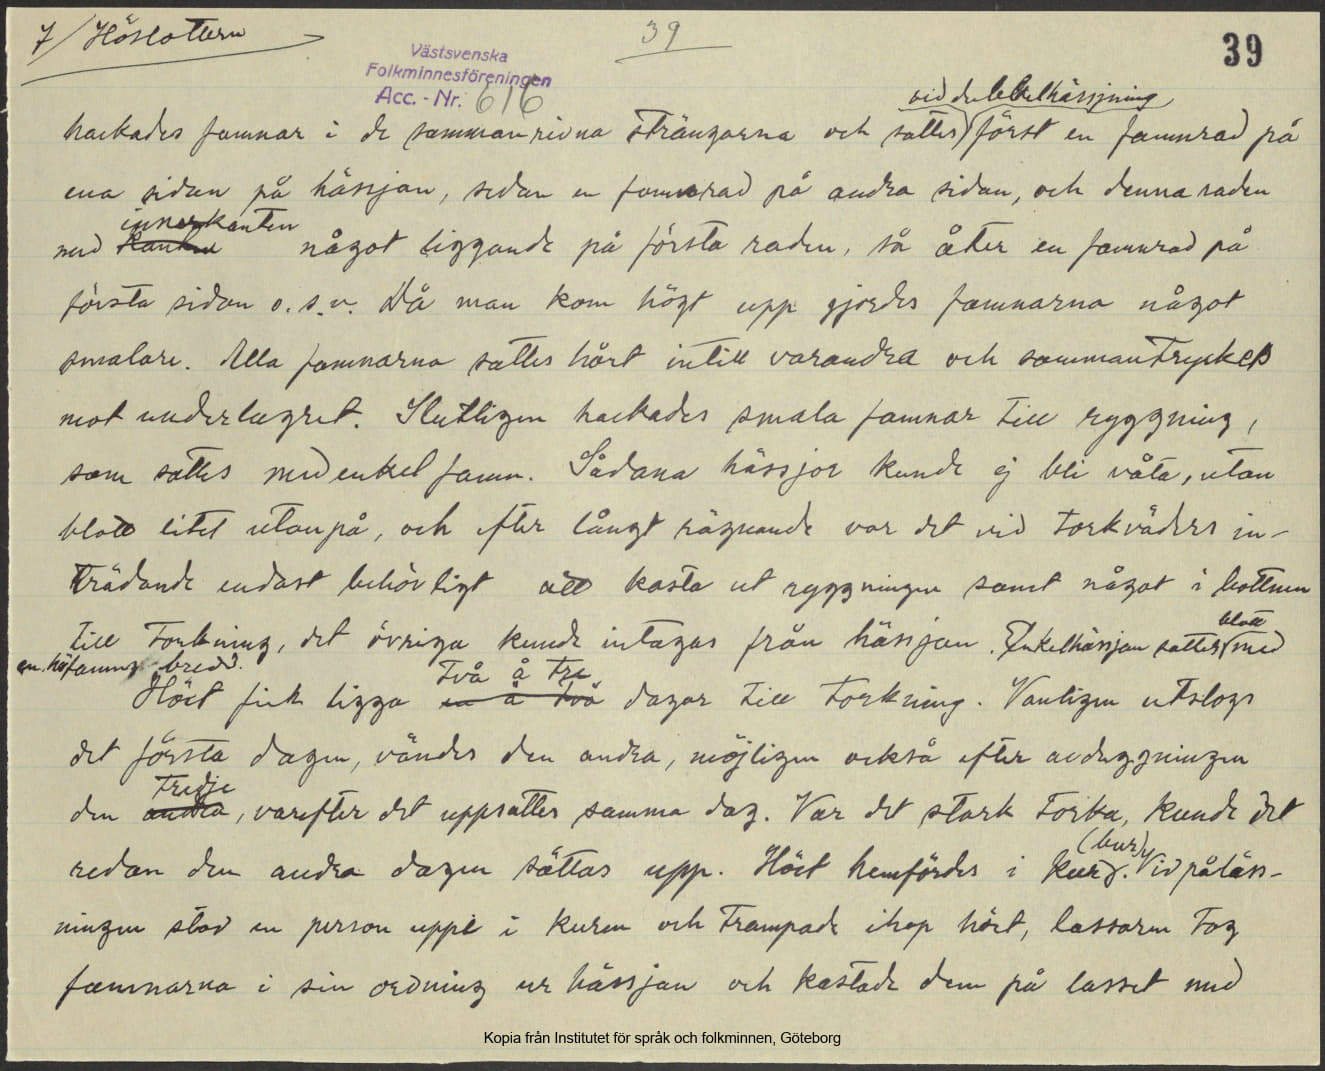 7/ Höslottern
39
39
Västsvenska
Folkminnesföreningen
Acc. - Nr. 616
vid dubbelhässjning
hackades famnar i de sammanrivna strängarna och sattes först en famnrad på
ena sidan på hässjan, sedan en famnrad på andra sidan, och denna raden
innerkanten
med kanten något liggande på första raden, så åter en famnrad på
första sidan o.s.v. Då man kom högt upp gjordes famnarna något
smalare. Alla famnarna sattes hårt intill varandra och sammantryckes
mot underlagret. Slutligen hackades smala famnar till ryggning,
som sattes med enkel famn. Sådana hässjor kunde ej bli våta, utan
blott litet utanpå, och efter långt rägnande var det vid torkväders in-
trädande endast behövligt att kasta ut ryggningen samt något i bottnen
blott
till torkning, det övriga kunde intagas från hässjan. Enkelhässjan sattes med
en höfamns bredd.
två å tre
Höet fick ligga en å två dagar till torkning. Vanligen utslogs
det första dagen, vändes den andra, möjligen också efter avdaggningen
tredje
den andra, varefter det uppsattes samma dag. Var det stark torka, kunde det
redan den andra dagen sättas upp. Höet hemfördes i kurg. Vid påläss-
(kur)
ningen stod en person uppe i kuren och trampade ihop höet, lassaren tog
famnarna i sin ordning ur hässjan och kastade dem på lasset med
Kopia från Institutet för språk och folkminnen, Göteborg